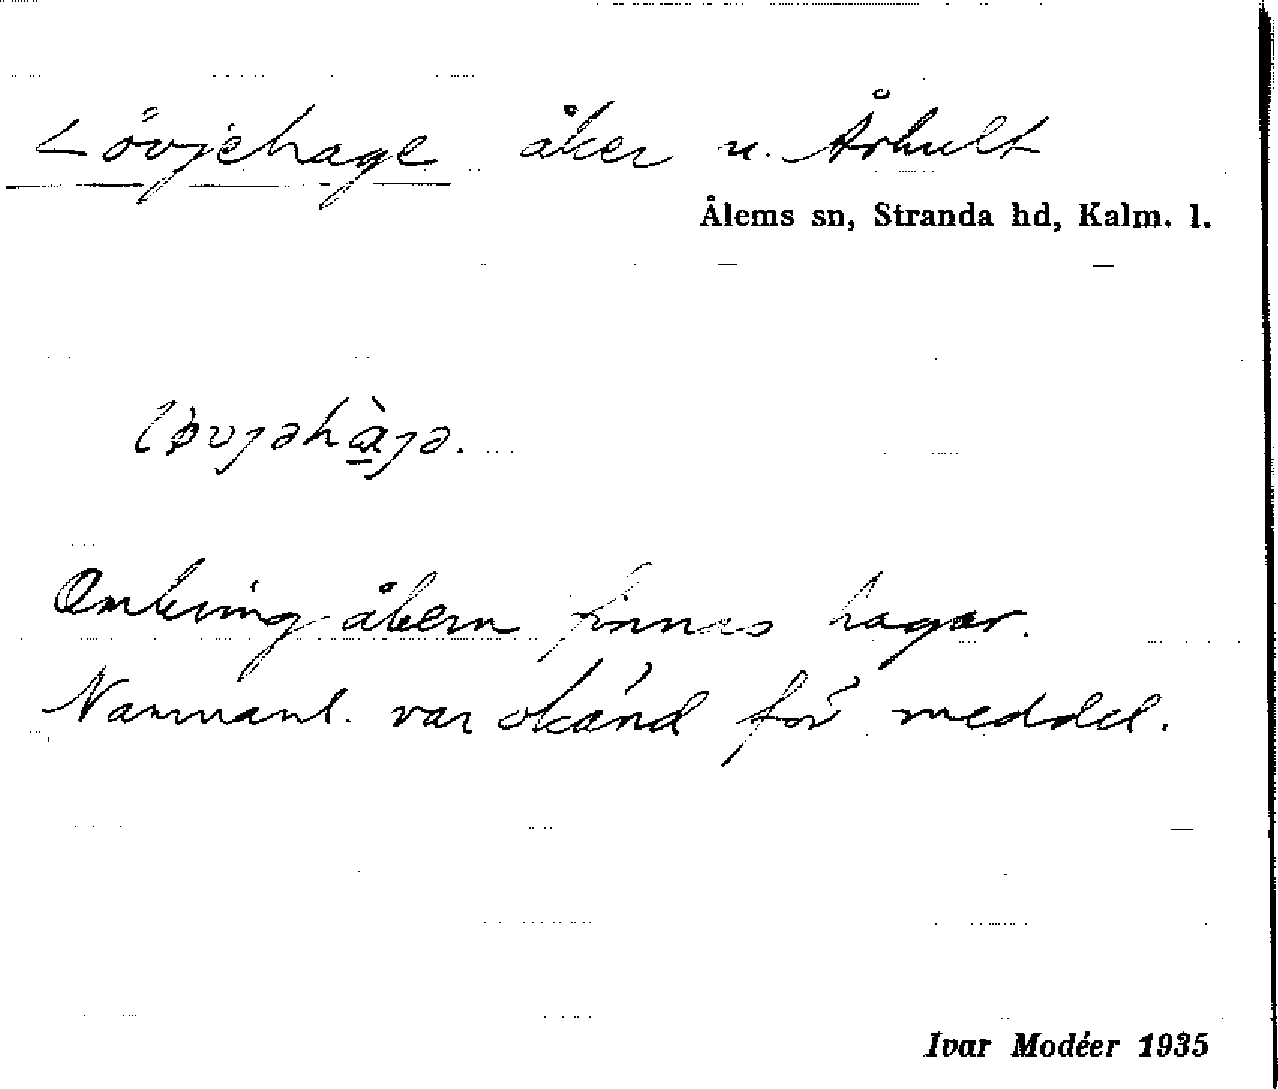 Lövjehage åker u. Århult
Ålems sn, Stranda hd, Kalm. l.
løvjəhàjə.
Omkring åkern finnes hagar.
Namnanl. var okänd för meddel.
Ivar Modéer 1935